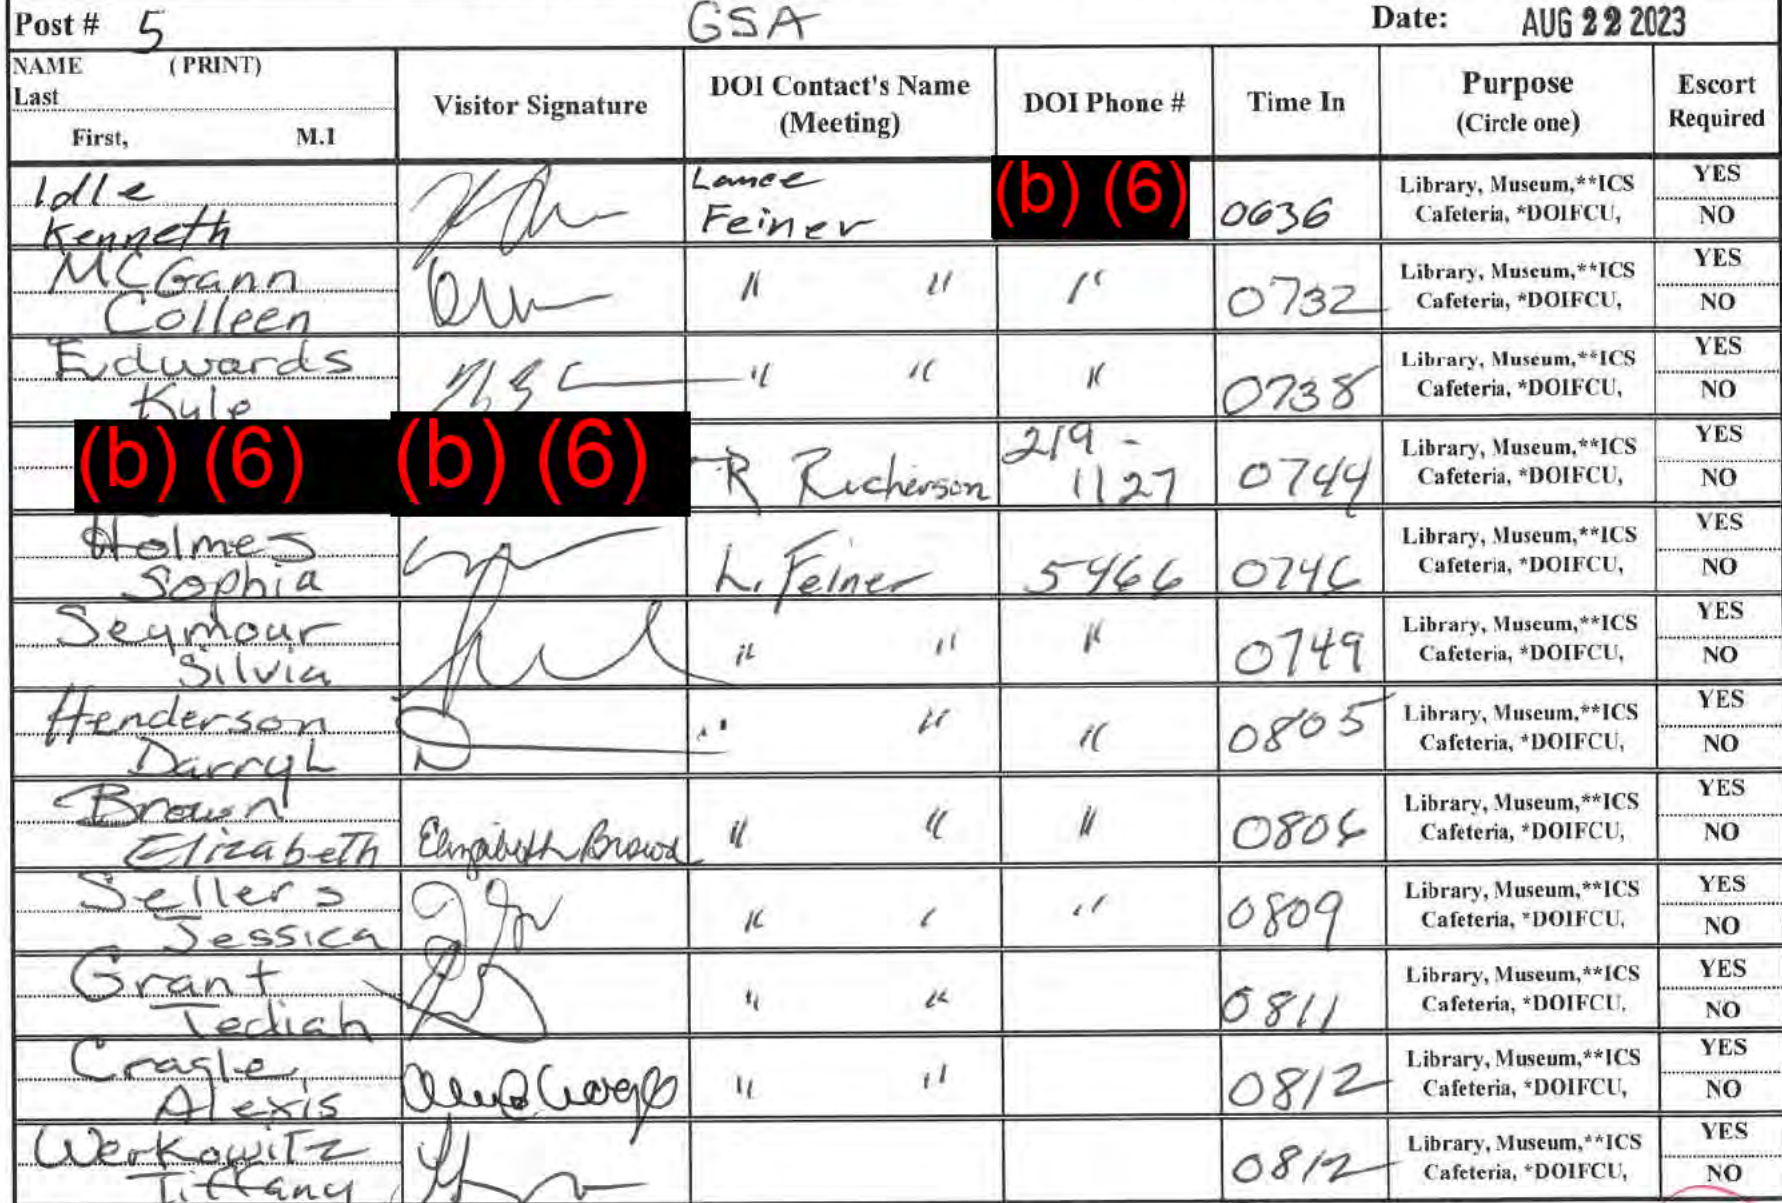 Post # 5 GSA Date: AUG 22 2023
NAME (PRINT)
Last
First, M.I
Visitor Signature
DOI Contact's Name
(Meeting)
DOI Phone #
Time In
Purpose
(Circle one)
Escort
Required
Idle
Kenneth
Lance
Feiner
(b) (6)
0636
Library, Museum,**ICS
Cafeteria, *DOIFCU,
YES
NO
McGann
Colleen
" " "
0732
Library, Museum,**ICS
Cafeteria, *DOIFCU,
YES
NO
Edwards
Kyle
" " "
0738
Library, Museum,**ICS
Cafeteria, *DOIFCU,
YES
NO
(b) (6) (b) (6)
R Richerson
219 -
1127
0744
Library, Museum,**ICS
Cafeteria, *DOIFCU,
YES
NO
Holmes
Sophia
L. Feiner
5466
0746
Library, Museum,**ICS
Cafeteria, *DOIFCU,
YES
NO
Seymour
Silvia
" " "
0749
Library, Museum,**ICS
Cafeteria, *DOIFCU,
YES
NO
Henderson
Darryl
" " "
0805
Library, Museum,**ICS
Cafeteria, *DOIFCU,
YES
NO
Brown
Elizabeth
Elizabeth Brown
" " "
0806
Library, Museum,**ICS
Cafeteria, *DOIFCU,
YES
NO
Sellers
Jessica
" " "
0809
Library, Museum,**ICS
Cafeteria, *DOIFCU,
YES
NO
Grant
Jediah
" "
0811
Library, Museum,**ICS
Cafeteria, *DOIFCU,
YES
NO
Cragle,
Alexis
" "
0812
Library, Museum,**ICS
Cafeteria, *DOIFCU,
YES
NO
Werkowitz
Tiffany
0812
Library, Museum,**ICS
Cafeteria, *DOIFCU,
YES
NO